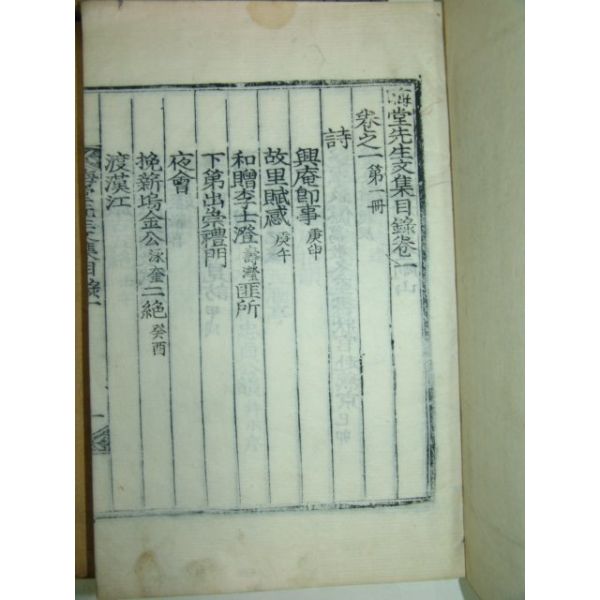 晦堂先生文集目錄卷一
卷之一 第一冊
詩
興庵卽事
故里賦感 庚午
和贈李士澄 壽瀅 匪所
下第出崇禮門
夜會
挽新塢金公 泳奎 二絶 癸酉
渡漢江
堂先生文集目錄一